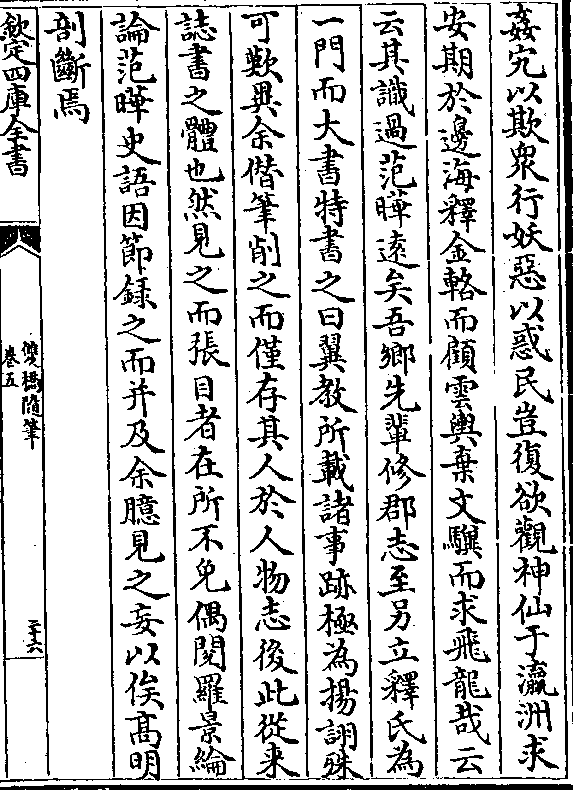 姦宄以欺衆行妖惡以惑民豈復欲觀神仙于瀛洲求
安期於邊海釋金輅而顧雲輿棄文驥而求飛龍哉云
云其識過范曄逺矣吾鄉先輩修郡志至另立釋氏為
一門而大書特書之曰翼教所載諸事跡極為揚詡殊
可歎異余偕筆削之而僅存其人於人物志後此從来
誌書之體也然見之而張目者在所不免偶閱羅景綸
論范曄史語因節録之而并及余臆見之妄以俟髙明
剖斷焉
欽定四庫全書
雙橋隨筆
卷五
二十六